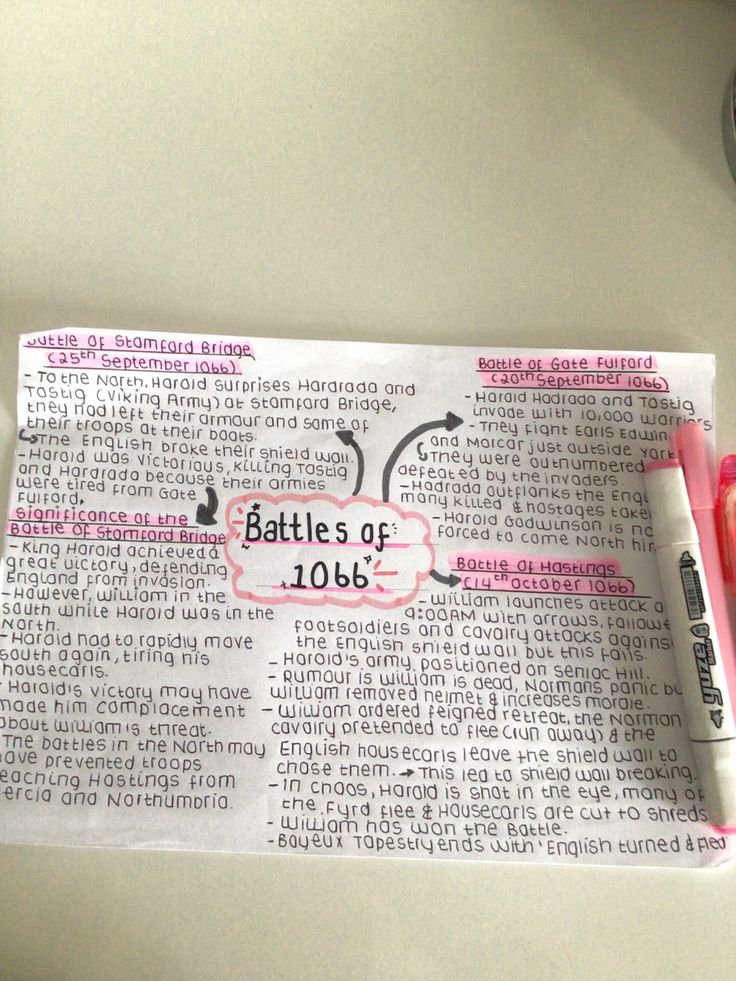 Battle of Stamford Bridge
(25th September 1066)
- To the North, Harold surprises Hardrada and
Tostig (Viking Army) at Stamford Bridge,
they had left their armour and some of
their troops at their boats.
↳The English brake their shield wall.
- Harold was victorious, killing Tostig
and Hardrada because their armies
were tired from Gate
Fulford.
Significance of the
Battle of Stamford Bridge
- King Harold achieved a
great victory, defending
England from invasion.
- However, William in the
South while Harold was in the
North.
- Harold had to rapidly move
South again, tiring his
housecarls.
- Harold's victory may have
made him complacement
about William's threat.
The battles in the North may
have prevented troops
reaching Hastings from
Mercia and Northumbria.
Battles of
1066
Battle of Gate Fulford
(20th September 1066)
- Harald Hadrada and Tostig
invade with 10,000 warriors
- They fight Earls Edwin
and Morcar just outside York
↳They were outnumbered
defeated by the invaders.
- Hadrada outflanks the
many killed & hostages
- Harold Godwinson is
forced to come North
Battle of Hastings
(14th October 1066)
- William launches attack
9:00AM with arrows,
footsoldiers and cavalry attacks
the English shield wall but this fails.
- Harold's army, positioned on Senlac Hill.
- Rumour is William is dead, Normans panic
William removed helmet & increases morale.
- William ordered feigned retreat, the Norman
cavalry pretended to flee (run away) & the
English housecarls leave the shield wall to
chase them. → This led to shield wall breaking.
- In chaos, Harold is shot in the eye, many of
the Fyrd flee & Housecarls are cut to shreds
- William has won the Battle.
- Bayeux Tapestry ends with 'English turned & fled
yuze